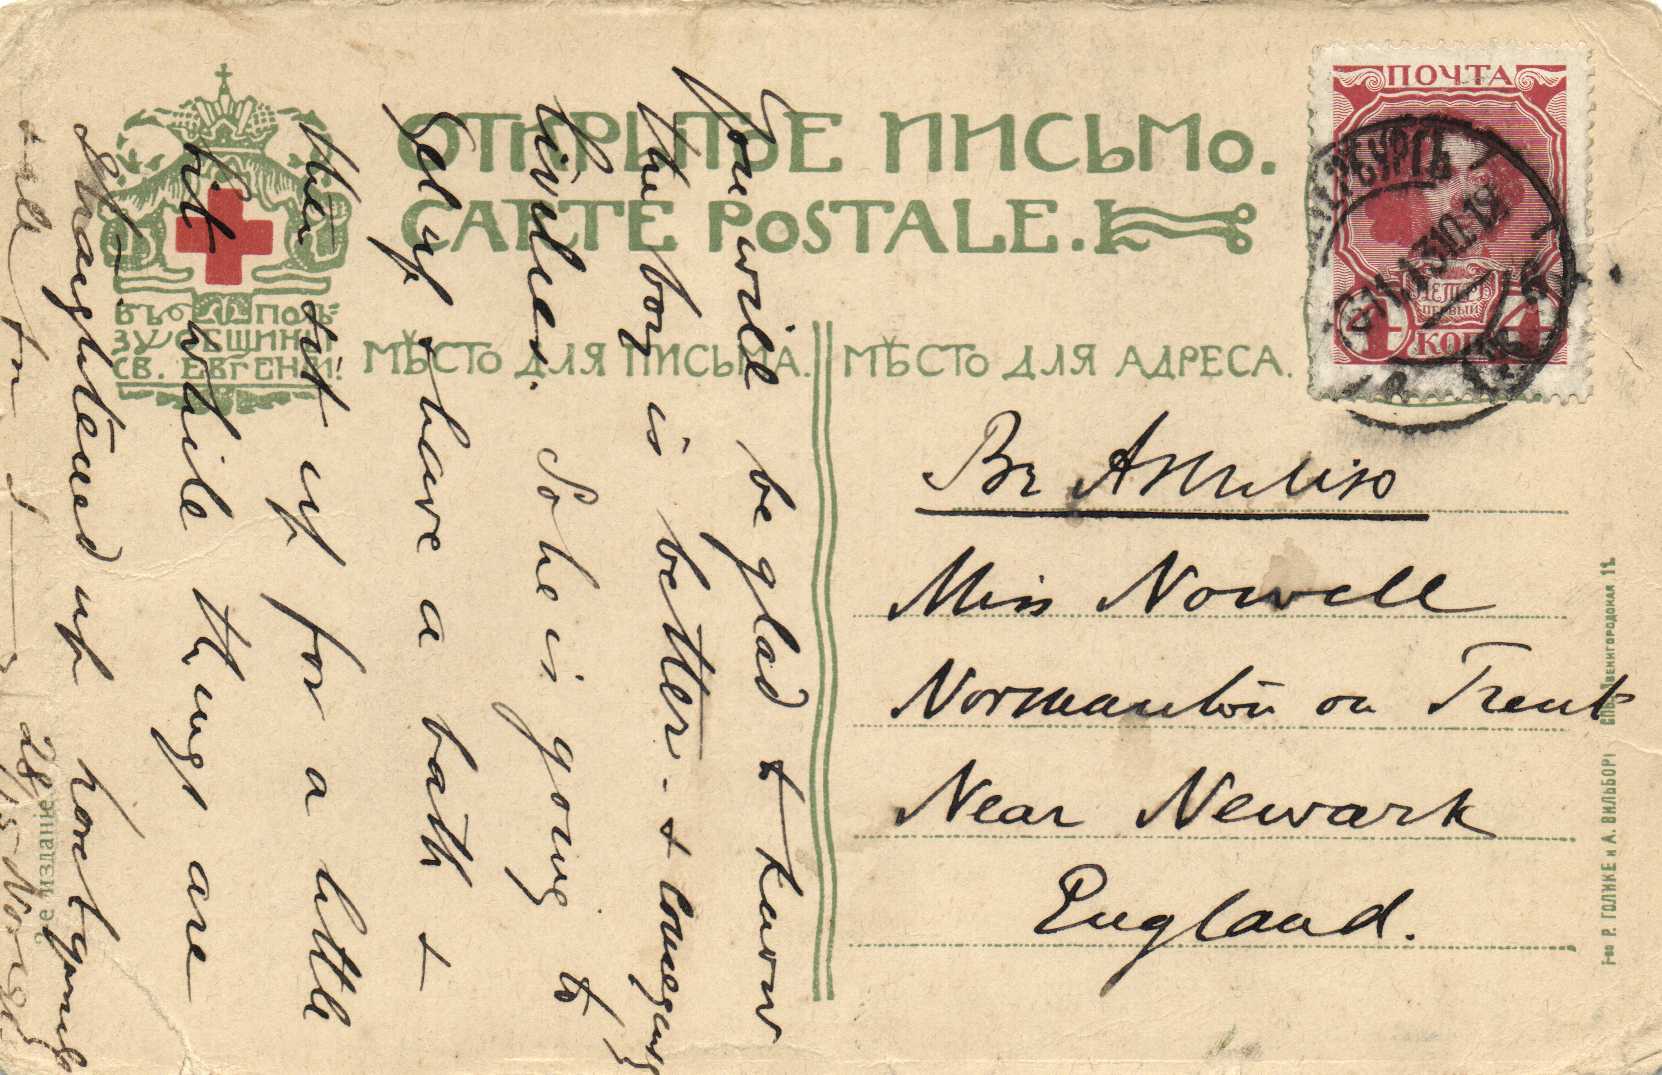 ОТКРЫТОЕ ПИСЬМО.
CARTE POSTALE.
ВЪ ПОЛЬ-
ЗУ ОБЩИНЫ
СВ. ЕВГЕНІИ!
МѢСТО ДЛЯ ПИСЬМА.
МѢСТО ДЛЯ АДРЕСА.
ПОЧТА
4 КОП 4
You will be glad to know
the boy is better - &
livelier. So he is going to
get up & have a bath &
then sit up for a little
bit while things are
straightened up
28
Въ Англію
Miss Nowell
Normanton on Trent
Near Newark
England.
е изданіе
Т-во Р. ГОЛИКЕ и А. ВИЛЬБОРГЪ СПБ. Звенигородская 11.